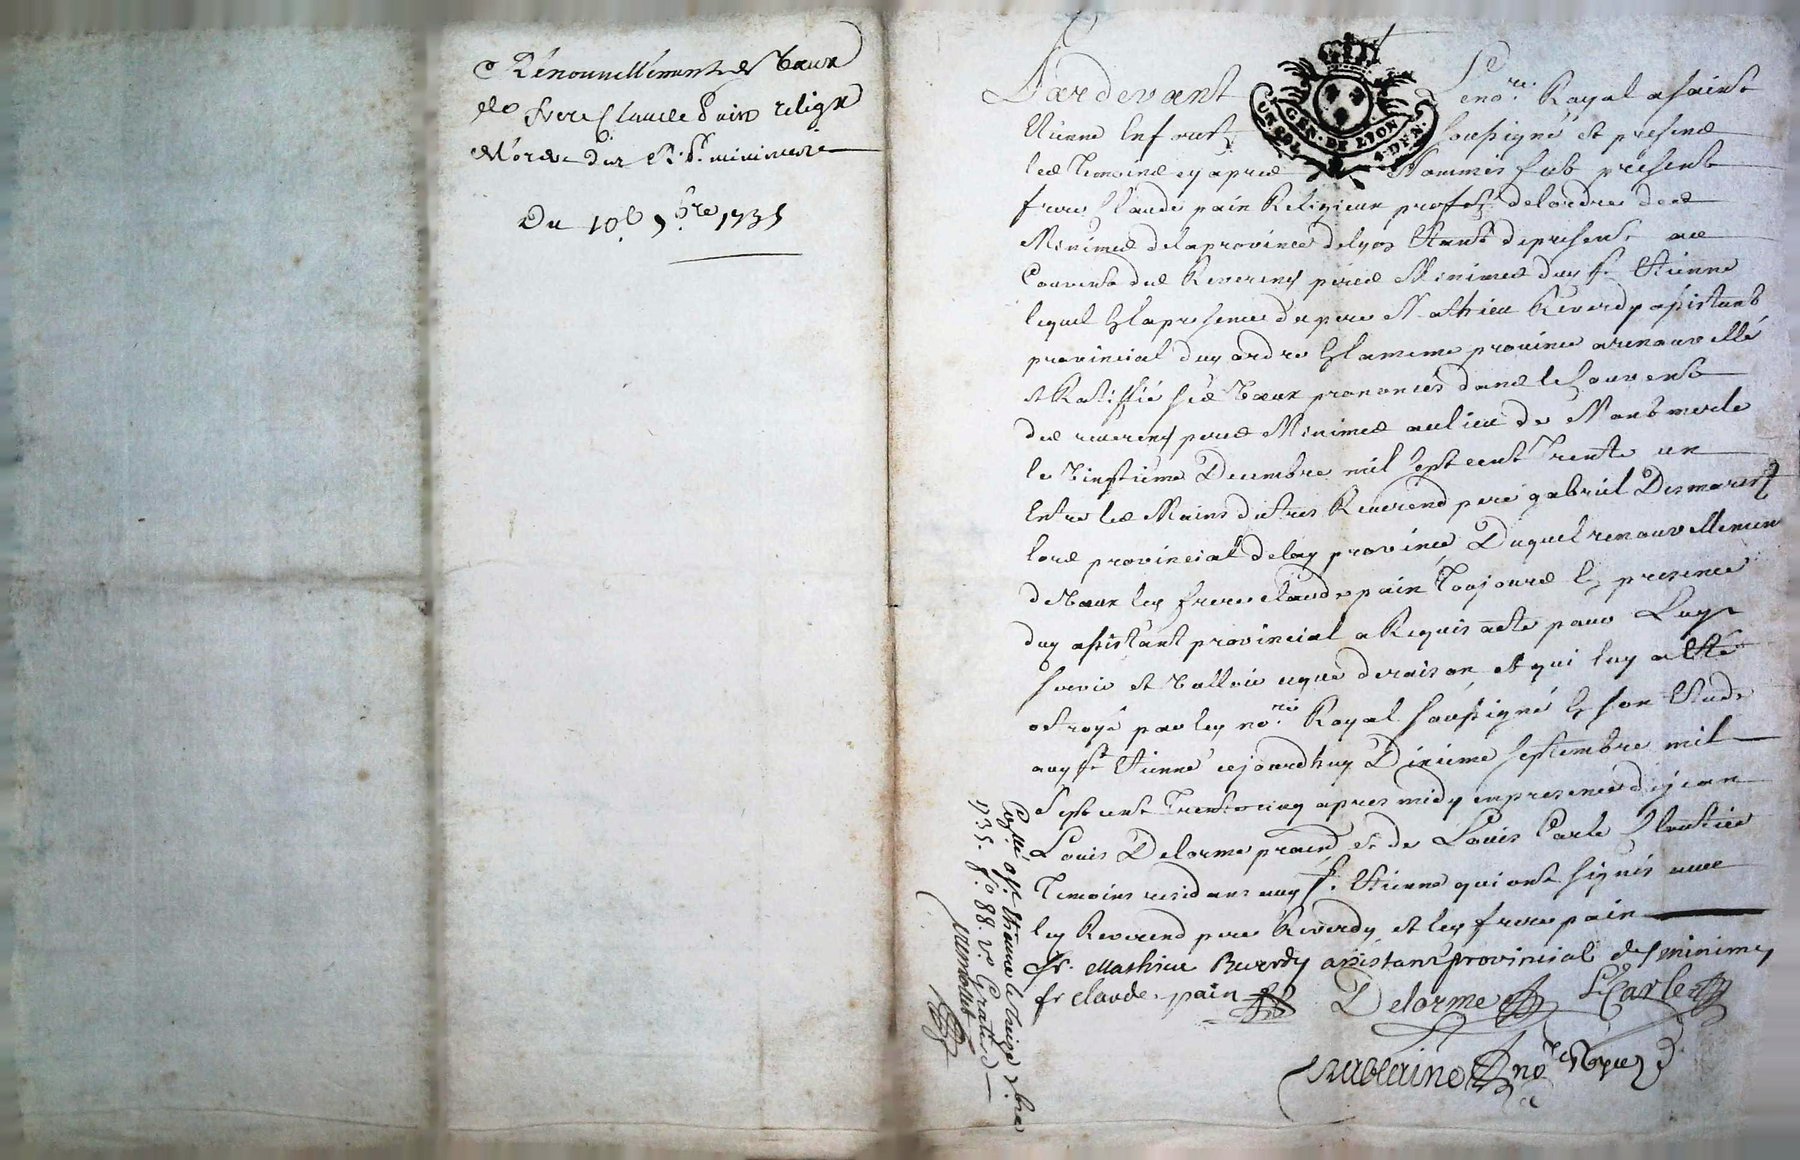 Rénouvellément de Vœux
de frere Claude Pain religx
de l'ordre des RR. Pr. minimes
Du 10e 7bre 1735
Pardevant le nore Royal a saint
UN SOL GEN. DE LYON 4. DEN.
Etienne en forest soussigné et presens
les temoins cy apres nommes fut present
frere Claude pain Religieux profes de lordre des
Minimes de la province de lyon Etant de present au
Couvent des Reverens peres Minimes dud st Etienne
lequel En la presence du pere Mathieu Reverdy assistant
provincial dud ordre En la meme province a renouvellé
et Ratiffié ses Vœux prononcés dans le Couvent
des reverens peres Minimes au lieu de Montmerle
le vingtieme Decembre mil sept cent trente un
Entre les Mains du tres Reverend pere gabriel Desmarest
lors provincial de lad province Duquel renouvellement
de Vœux led frere claude pain toujours En presence
dud assistant provincial a Requis acte pour Luy
servir et valloir ce que de raison et qui luy a Eté
octroyé par led nore Royal soussigné En son Etude
aud st Etienne cejourdhuy Dixieme septembre mil
sept cent trente cinq apres midy en presence de jean
Louis Delorme pratn et de Louis Carle
temoins residans aud st Etienne qui ont signés avec
led Reverend pere Reverdy et led frere pain
fr. Mathieu Reverdy assistant provincial des minimes
fr claude pain Delorme L Carle
nore Royal
Collé a St Etienne le 7bre
1735. fo. 88. vo. Gratis